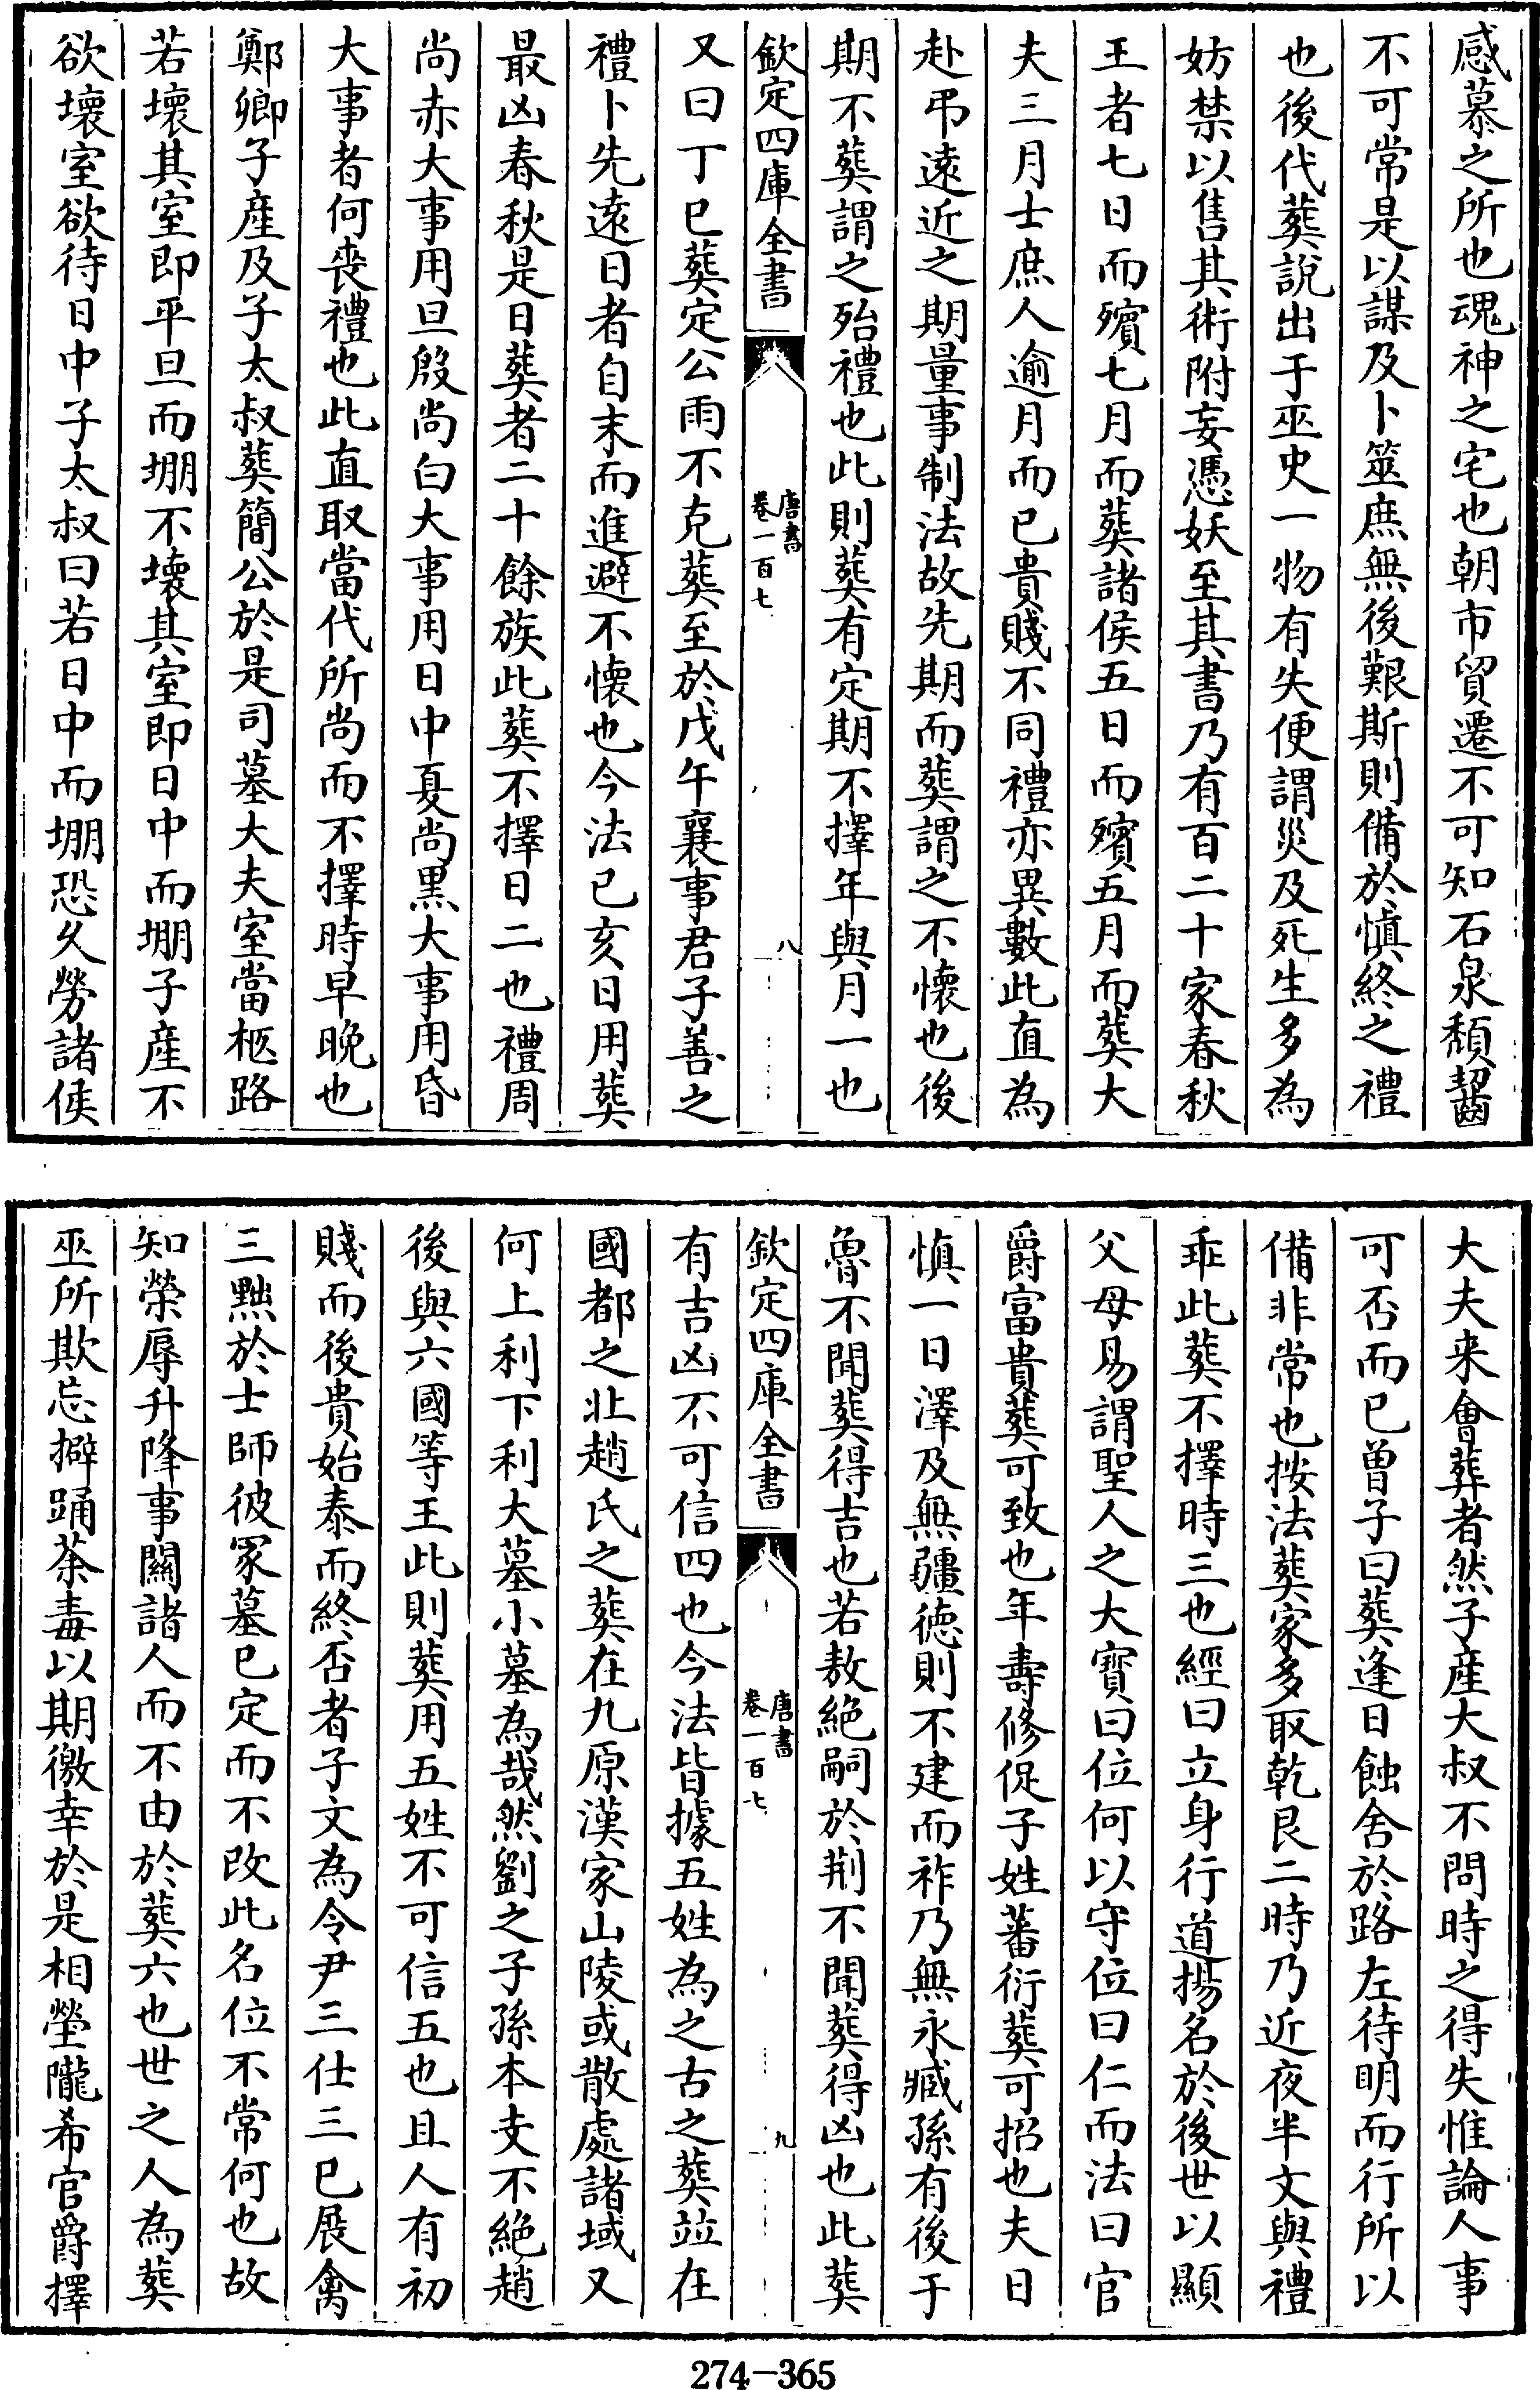 感慕之所也魂神之宅也朝市貿遷不可知石泉頹齧
不可常是以謀及卜筮庶無後艱斯則備於慎終之禮
也後代葬說出于巫史一物有失便謂災及死生多為
妨禁以售其術附妄憑妖至其書乃有百二十家春秋
王者七日而殯七月而葬諸侯五日而殯五月而葬大
夫三月士庶人逾月而已貴賤不同禮亦異數此直為
赴弔遠近之期量事制法故先期而葬謂之不懷也後
期不葬謂之殆禮也此則葬有定期不擇年與月一也
欽定四庫全書
唐書
卷一百七
八
又曰丁巳葬定公雨不克葬至於戊午襄事君子善之
禮卜先遠日者自末而進避不懷也今法已亥日用葬
最凶春秋是日葬者二十餘族此葬不擇日二也禮周
尚赤大事用旦殷尚白大事用日中夏尚黑大事用昏
大事者何喪禮也此直取當代所尚而不擇時早晚也
鄭卿子產及子太叔葬簡公於是司墓大夫室當柩路
若壞其室即平旦而堋不壞其室即日中而堋子產不
欲壞室欲待日中子太叔曰若日中而堋恐久勞諸侯
大夫来會葬者然子產太叔不問時之得失惟論人事
可否而已曾子曰葬逢日蝕舍於路左待明而行所以
備非常也按法葬家多取乾艮二時乃近夜半文與禮
乖此葬不擇時三也經曰立身行道揚名於後世以顯
父母易謂聖人之大寶曰位何以守位曰仁而法曰官
爵富貴葬可致也年壽修促子姓蕃衍葬可招也夫日
慎一日澤及無疆德則不建而祚乃無永臧孫有後于
魯不聞葬得吉也若敖絕嗣於荆不聞葬得凶也此葬
欽定四庫全書
唐書
卷一百七
九
有吉凶不可信四也今法皆據五姓為之古之葬竝在
國都之北趙氏之葬在九原漢家山陵或散處諸域又
何上利下利大墓小墓為哉然劉之子孫本支不絕趙
後與六國等王此則葬用五姓不可信五也且人有初
賤而後貴始泰而終否者子文為令尹三仕三巳展禽
三黜於士師彼冢墓已定而不改此名位不常何也故
知榮辱升降事關諸人而不由於葬六也世之人為葬
巫所欺忘擗踊荼毒以期徼幸於是相塋隴希官爵擇
274-365